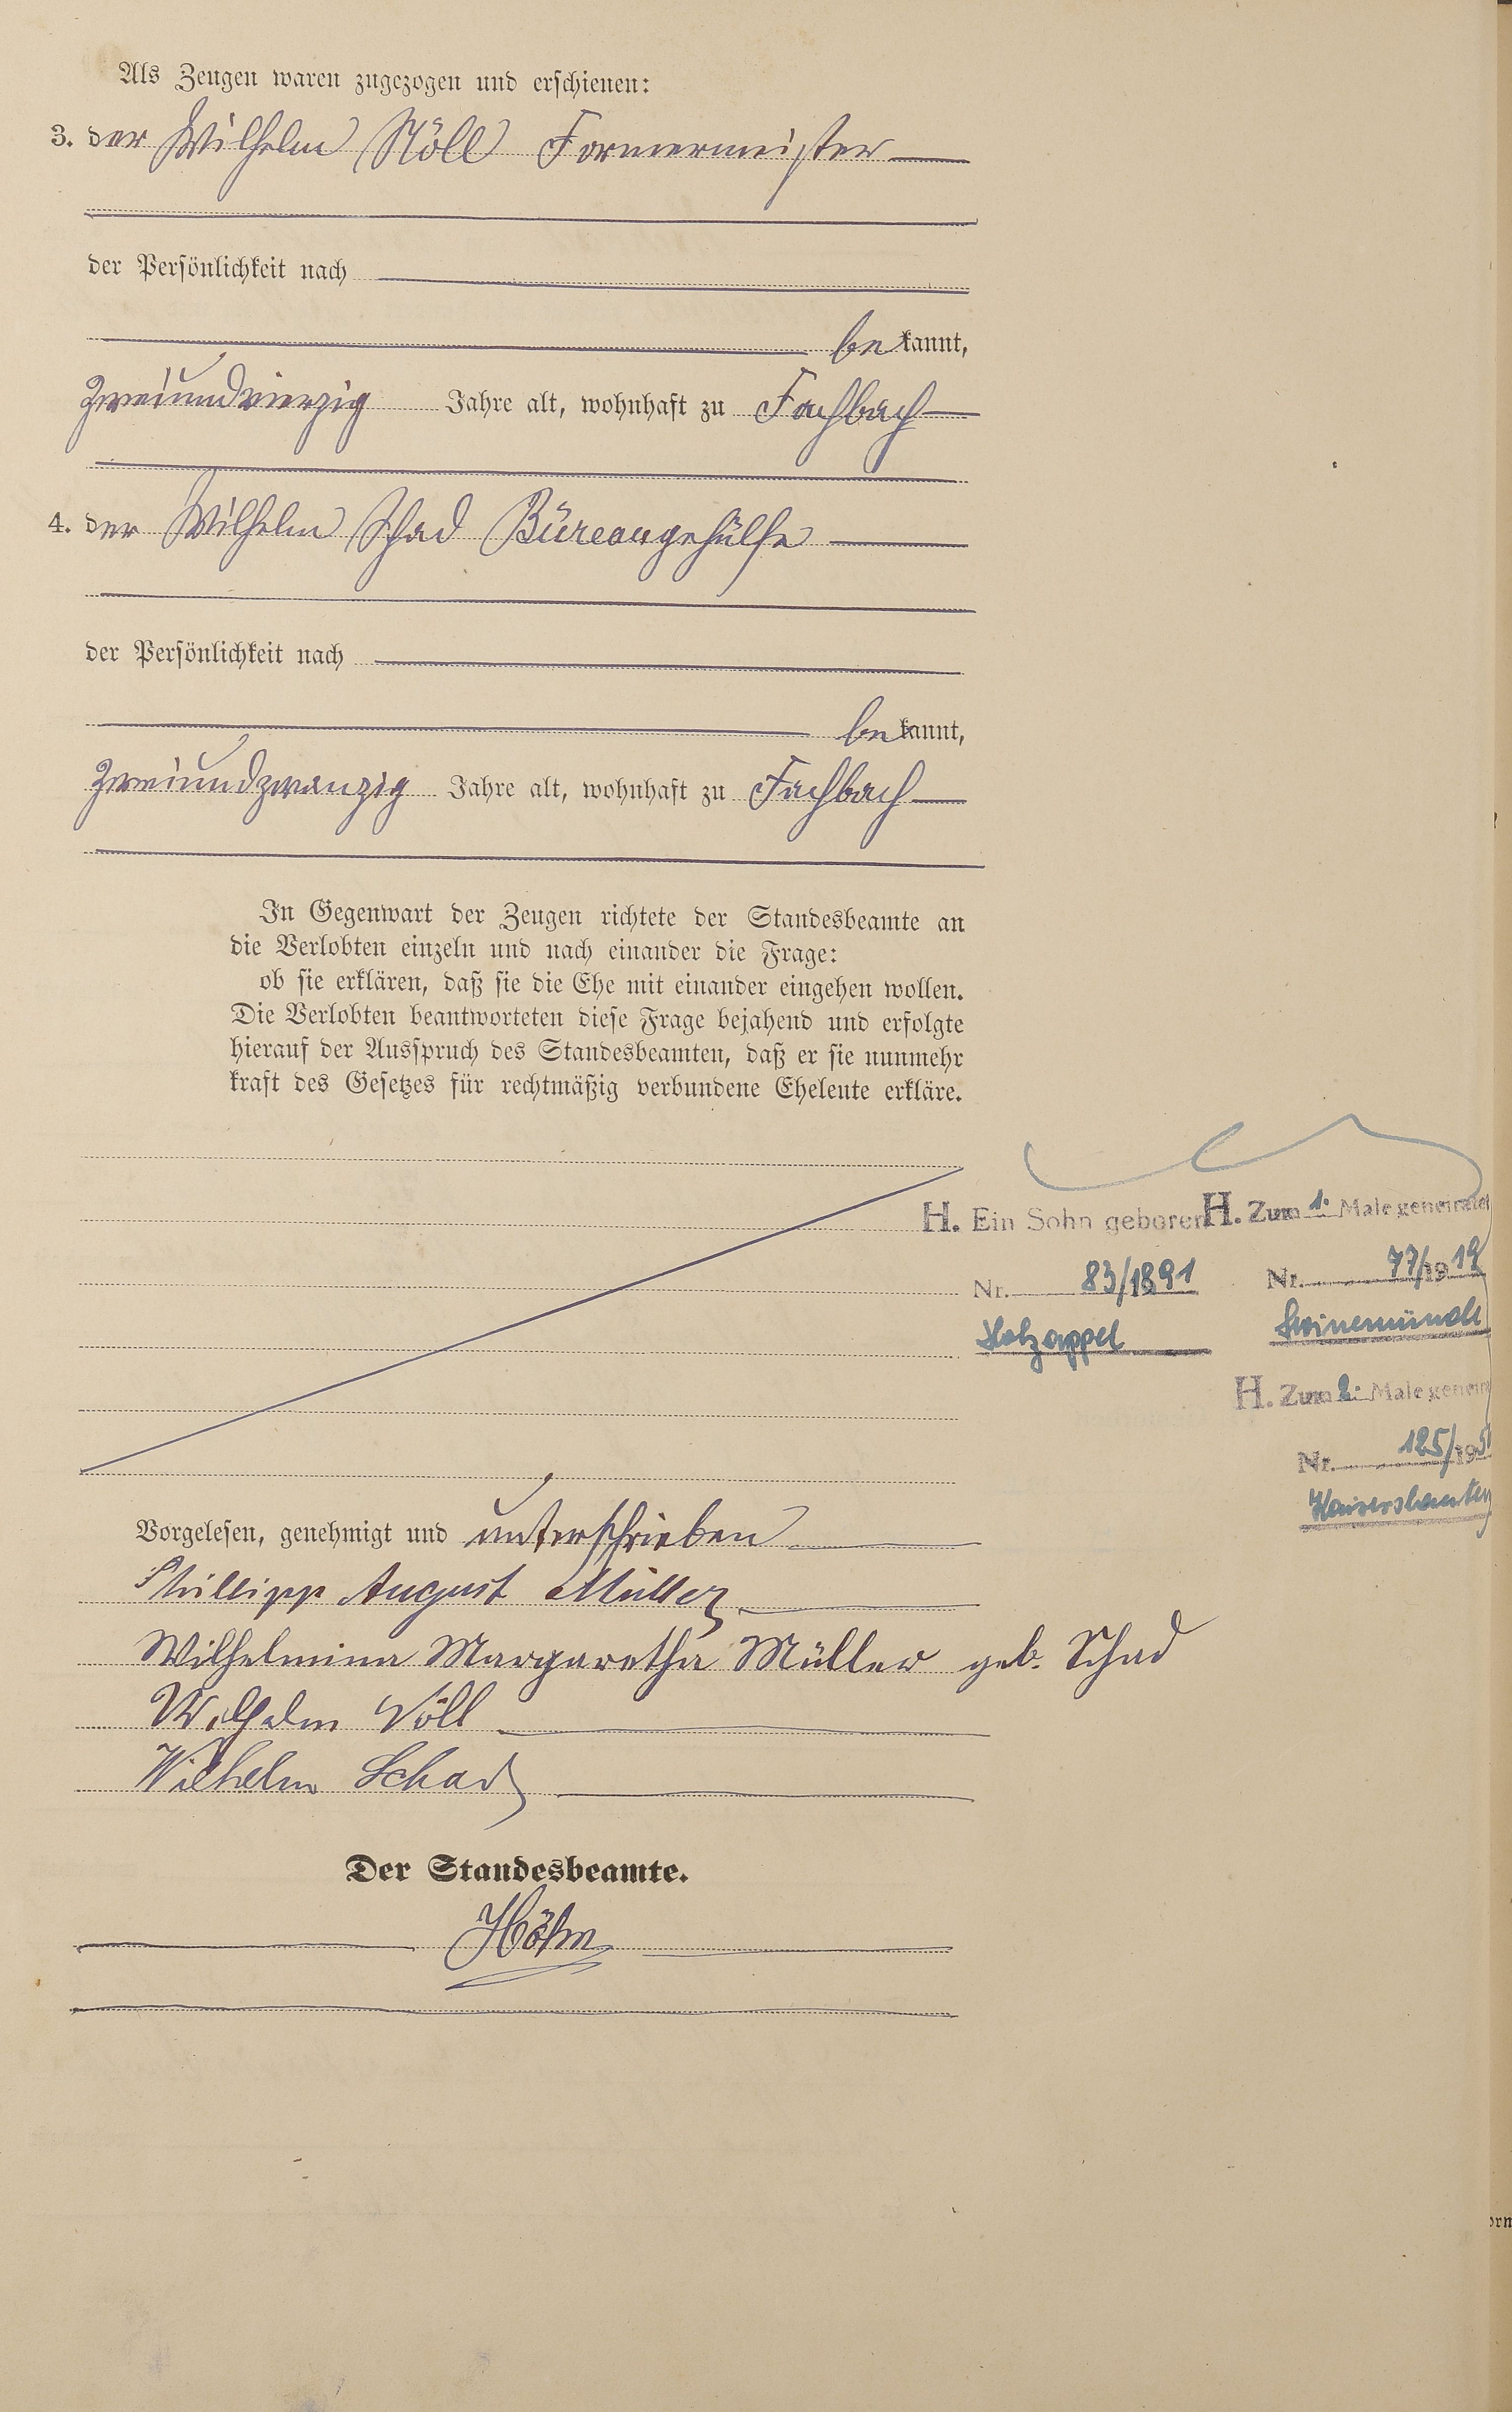 Als Zeugen waren zugezogen und erschienen:
3. der Wilhelm Nöll Formermeister
der Persönlichkeit nach
bekannt,
zweiundvierzig Jahre alt, wohnhaft zu Fachbach
4. der Wilhelm Schad Büreaugehülfe
der Persönlichkeit nach
bekannt,
zweiundzwanzig Jahre alt, wohnhaft zu Fachbach
In Gegenwart der Zeugen richtete der Standesbeamte an
die Verlobten einzeln und nach einander die Frage:
ob sie erklären, daß sie die Ehe mit einander eingehen wollen.
Die Verlobten beantworteten diese Frage bejahend und erfolgte
hierauf der Ausspruch des Standesbeamten, daß er sie nunmehr
kraft des Gesetzes für rechtmäßig verbundene Eheleute erkläre.
H. Ein Sohn geboren
Nr. 83/1891
Holzappel
H. Zum 1. Male geheiratet
Nr. 77/1919
Swinemünde
H. Zum 2. Male geheira
Nr. 125/195
Kaiserslautern
Vorgelesen, genehmigt und unterschrieben
Phillipp August Müller
Wilhelmina Margaretha Müller geb. Schad
Wilhelm Nöll
Wilhelm Schad
Der Standesbeamte.
Höhn